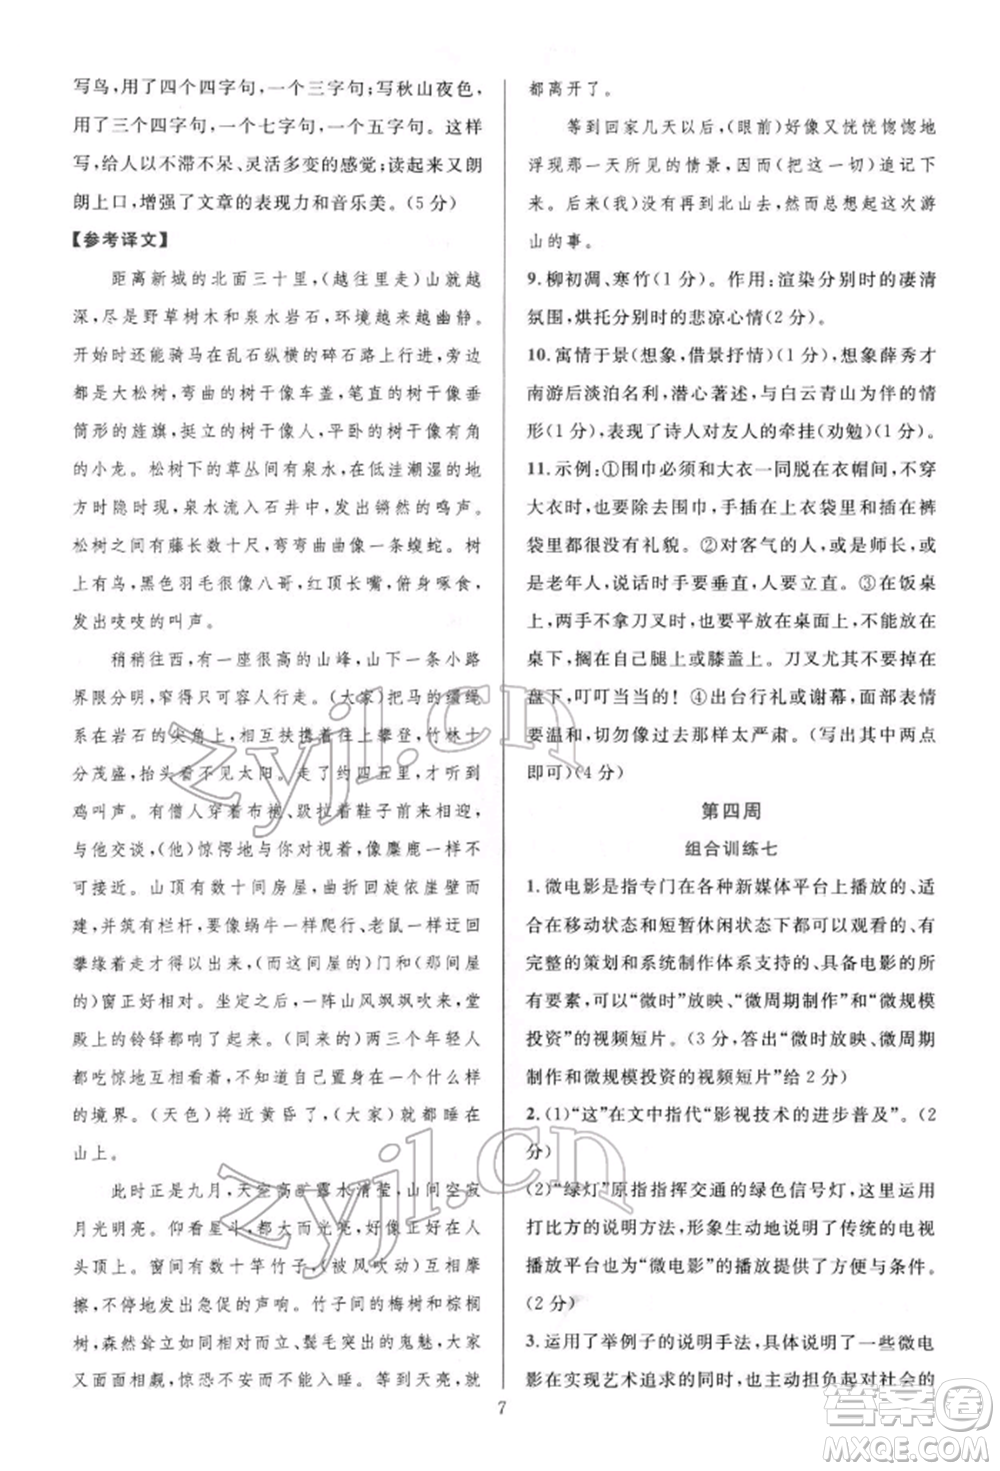 写鸟,用了四个四字句,一个三字句;写秋山夜色,
用了三个四字句,一个七字句,一个五字句。这样
写,给人以不滞不呆、灵活多变的感觉;读起来又朗
朗上口,增强了文章的表现力和音乐美。(5 分)
【参考译文】
距离新城的北面三十里,(越往里走)山就越
深,尽是野草树木和泉水岩石,环境越来越幽静。
开始时还能骑马在乱石纵横的碎石路上行进,旁边
都是大松树,弯曲的树干像车盖,笔直的树干像垂
筒形的旌旗,挺立的树干像人,平卧的树干像有角
的小龙。松树下的草丛间有泉水,在低洼潮湿的地
方时隐时现,泉水流入石井中发出清脆锵然的鸣声。
松树之间有藤长数十尺,弯弯曲曲像一条蝮蛇。树
上有鸟,黑色羽毛很像八哥,红顶长嘴,俯身啄食,
发出吱吱的叫声。
稍稍往西,有一座很高的山峰,山下一条小路
界限分明,窄得只可容人行走。(大家)把马的缰绳
系在岩石的尖角上,相互扶携着往上攀登,竹林十
分茂盛,抬头看不见太阳。走了约四五里,才听到
鸡叫声。有僧人穿着布袍、趿拉着鞋子前来相迎,
与他交谈,(他)惊愕地看着我们,像麋鹿一样不可
接近。山顶有数十间房屋,曲折地依着崖壁而
建,并有栏杆,要像蜗牛一样爬行、老鼠一样
攀缘着走才得以出来,(这间屋的)门和(那间屋
的)窗正好相对。坐定之后,一阵山风飒飒吹来,堂
殿上的铃铎都响了起来。(同来的)两三个年轻人
都吃惊地互相看着,不知道自己身处什么样
的境界。(天色)将近黄昏了,(大家)都睡在
山上。
此时正是九月,天空高旷露水清莹,山间空寂
月光明亮。仰看星斗,都大而光亮,好像正在人的
上方。窗间有数十竿竹子,(被风吹动)互相
摩擦,不停地发出急促的声响。竹子间的梅树和棕榈
树,森然耸立如同稀奇古怪、鬓毛突出的鬼魅,大家
又面面相觑,惊恐不安而不能入睡。等到天亮,就
都离开了。
等到回家几天以后,(眼前)好像又恍恍惚惚地
浮现那一天所见的情景,因而(把这一切)追记下
来。后来(我)没有再到北山去,然而总想起这次游
山的事。
9.柳初凋、寒竹(1 分)。作用:渲染分别时的凄清
氛围,烘托分别时的悲凉心情(2 分)。
10.寓情于景(想象,借景抒情)(1 分),想象薛秀才
南游后淡泊名利,潜心著述,与白云青山为伴的情
形(1 分),表现了诗人对友人的牵挂(劝勉)(1 分)。
11.示例:①围巾必须和大衣一同脱在衣帽间,不穿
大衣时,也要除去围巾,手插在上衣袋里和插在裤
袋里都没有礼貌。②对客气的人,或是师长,或
是老年人,说话时手要垂直,人要立正。③在饭桌
上,两手不拿刀叉时,要平放在桌面上,不能放在
桌下,搁在自己腿上或膝盖上。刀叉尤其不要掉在
盘下,叮叮当当的!④出台行礼或谢幕,面部表情
要温和,切勿像过去那样太严肃。(写出其中两点
即可)(4 分)
第四周
组合训练七
1.微电影是指专门在各种新媒体平台上播放的、适
合在移动状态和短暂休闲状态下都可以观看的、有
完整的策划和系统制作体系支持的、具备电影的所
有要素,可以“微时”放映、“微周期制作”和“微规模
投资”的视频短片。(3 分,答出“微时放映、微周期
制作和微规模投资的视频短片”给 2 分)
2.(1)“这”在文中指代“影视技术的进步普及”。(2
分)
(2)“绿灯”原指指挥交通的绿色信号灯,这里运用
打比方的说明方法,形象生动地说明了传统的电视
播放平台也为“微电影”的播放提供了方便与条件。
(2 分)
3.运用了举例子的说明手法,具体说明了一些微电
影在实现艺术追求的同时,也主动担负起对社会的
7
zyjl.cn
zyjl.cn
答案圈
MXQE.COM